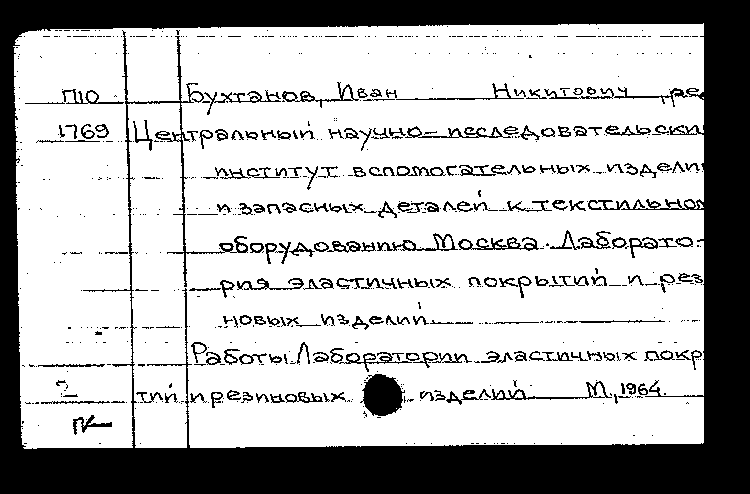 П10 Бухтанов, Иван Никитович, ре
1769 Центральный научно-исследовательски
институт вспомогательных издели
и запасных деталей к текстильном
оборудованию Москва. Лаборато-
рия эластичных покрытий и рез
новых изделий.
Работы Лаборатории эластичных покр
2 тий и резиновых изделий М., 1964.